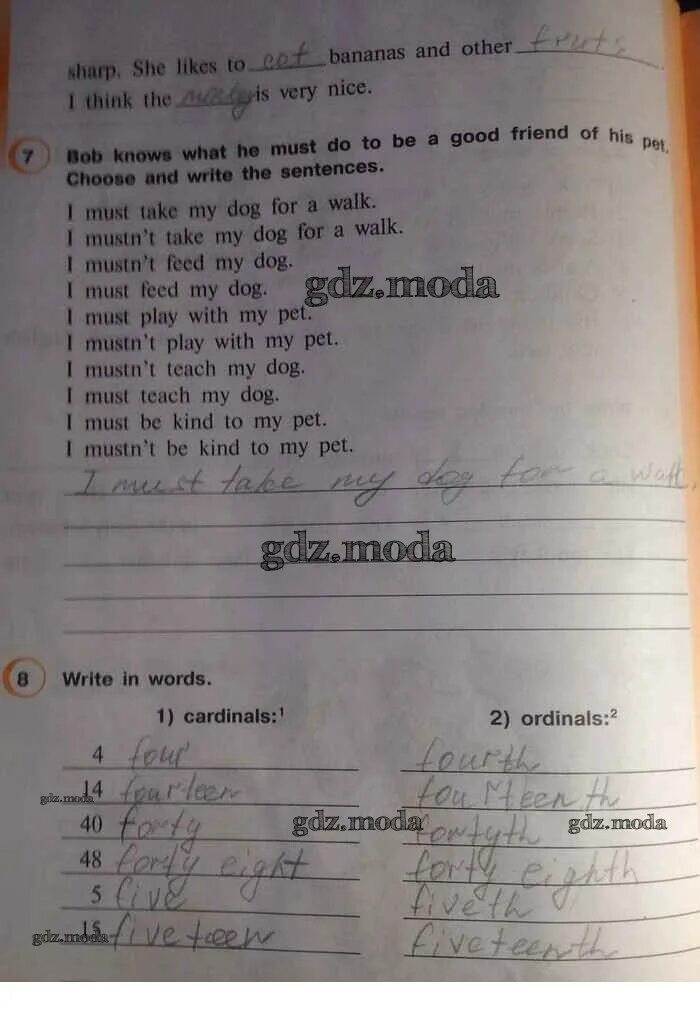 sharp. She likes to eat bananas and other fruits.
I think the is very nice.
7 Bob knows what he must do to be a good friend of his pet.
Choose and write the sentences.
I must take my dog for a walk.
I mustn't take my dog for a walk.
I mustn't feed my dog.
I must feed my dog.
gdz.moda
I must play with my pet.
I mustn't play with my pet.
I mustn't teach my dog.
I must teach my dog.
I must be kind to my pet.
I mustn't be kind to my pet.
I must take my dog for a walk.
gdz.moda
8 Write in words.
1) cardinals:¹ 2) ordinals:²
4 four fourth
gdz.moda 14 fourteen fourteenth
40 forty gdz.moda fortyth gdz.moda
48 forty eight forty eighth
5 five fiveth
gdz.moda 15 fiveteen fiveteenth